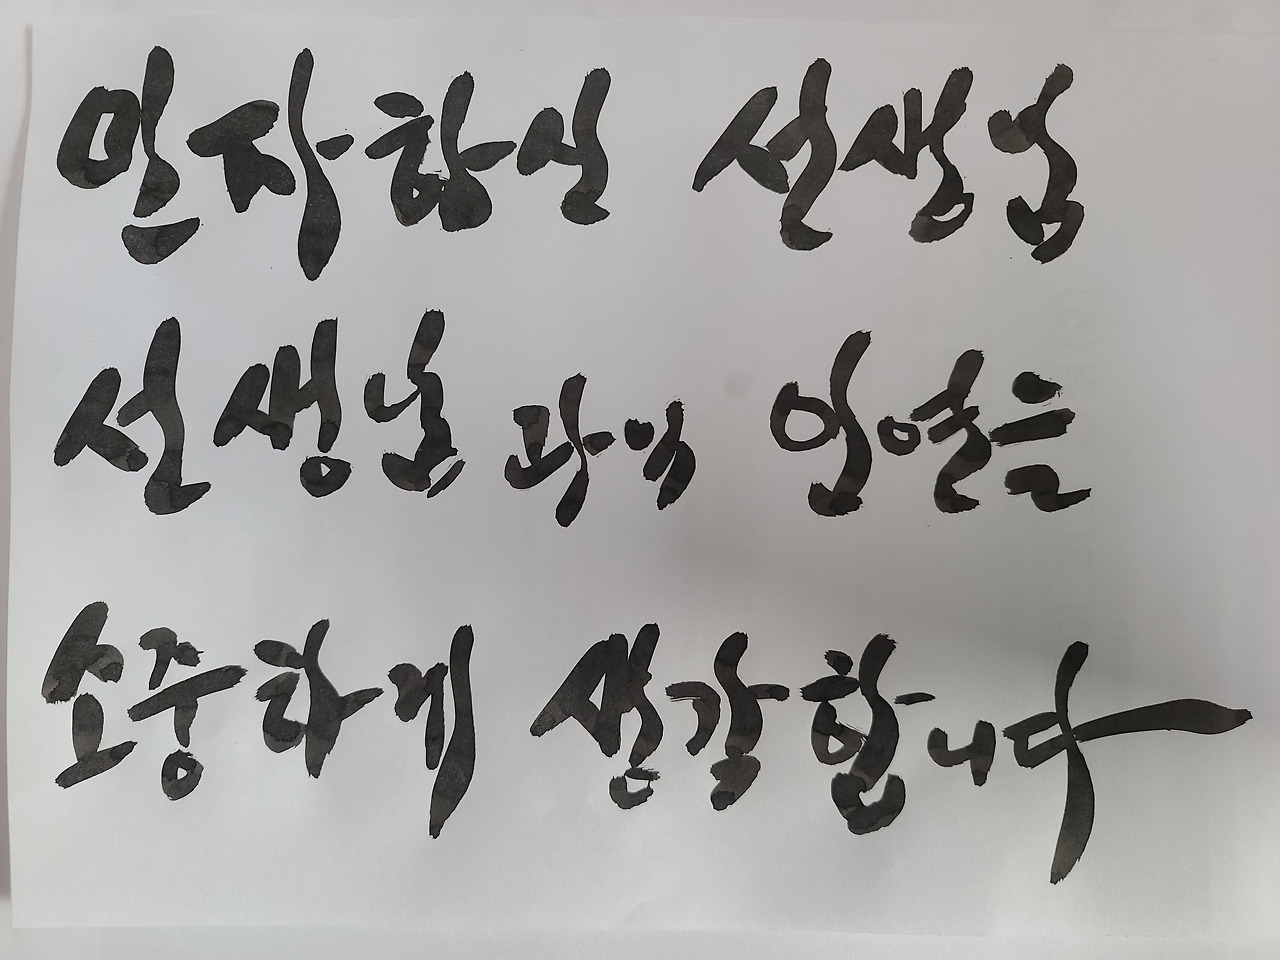 인자하신 선생님
선생님과의 인연을
소중하게 생각합니다